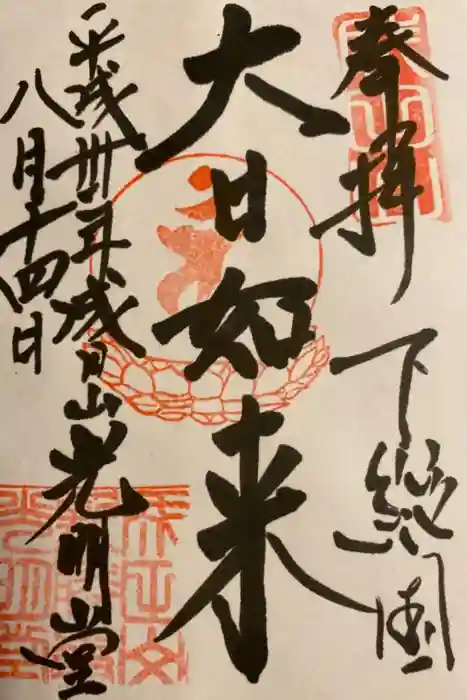 奉拝 下総國
大日如来
平成卅年成田山光明堂
八月十四日